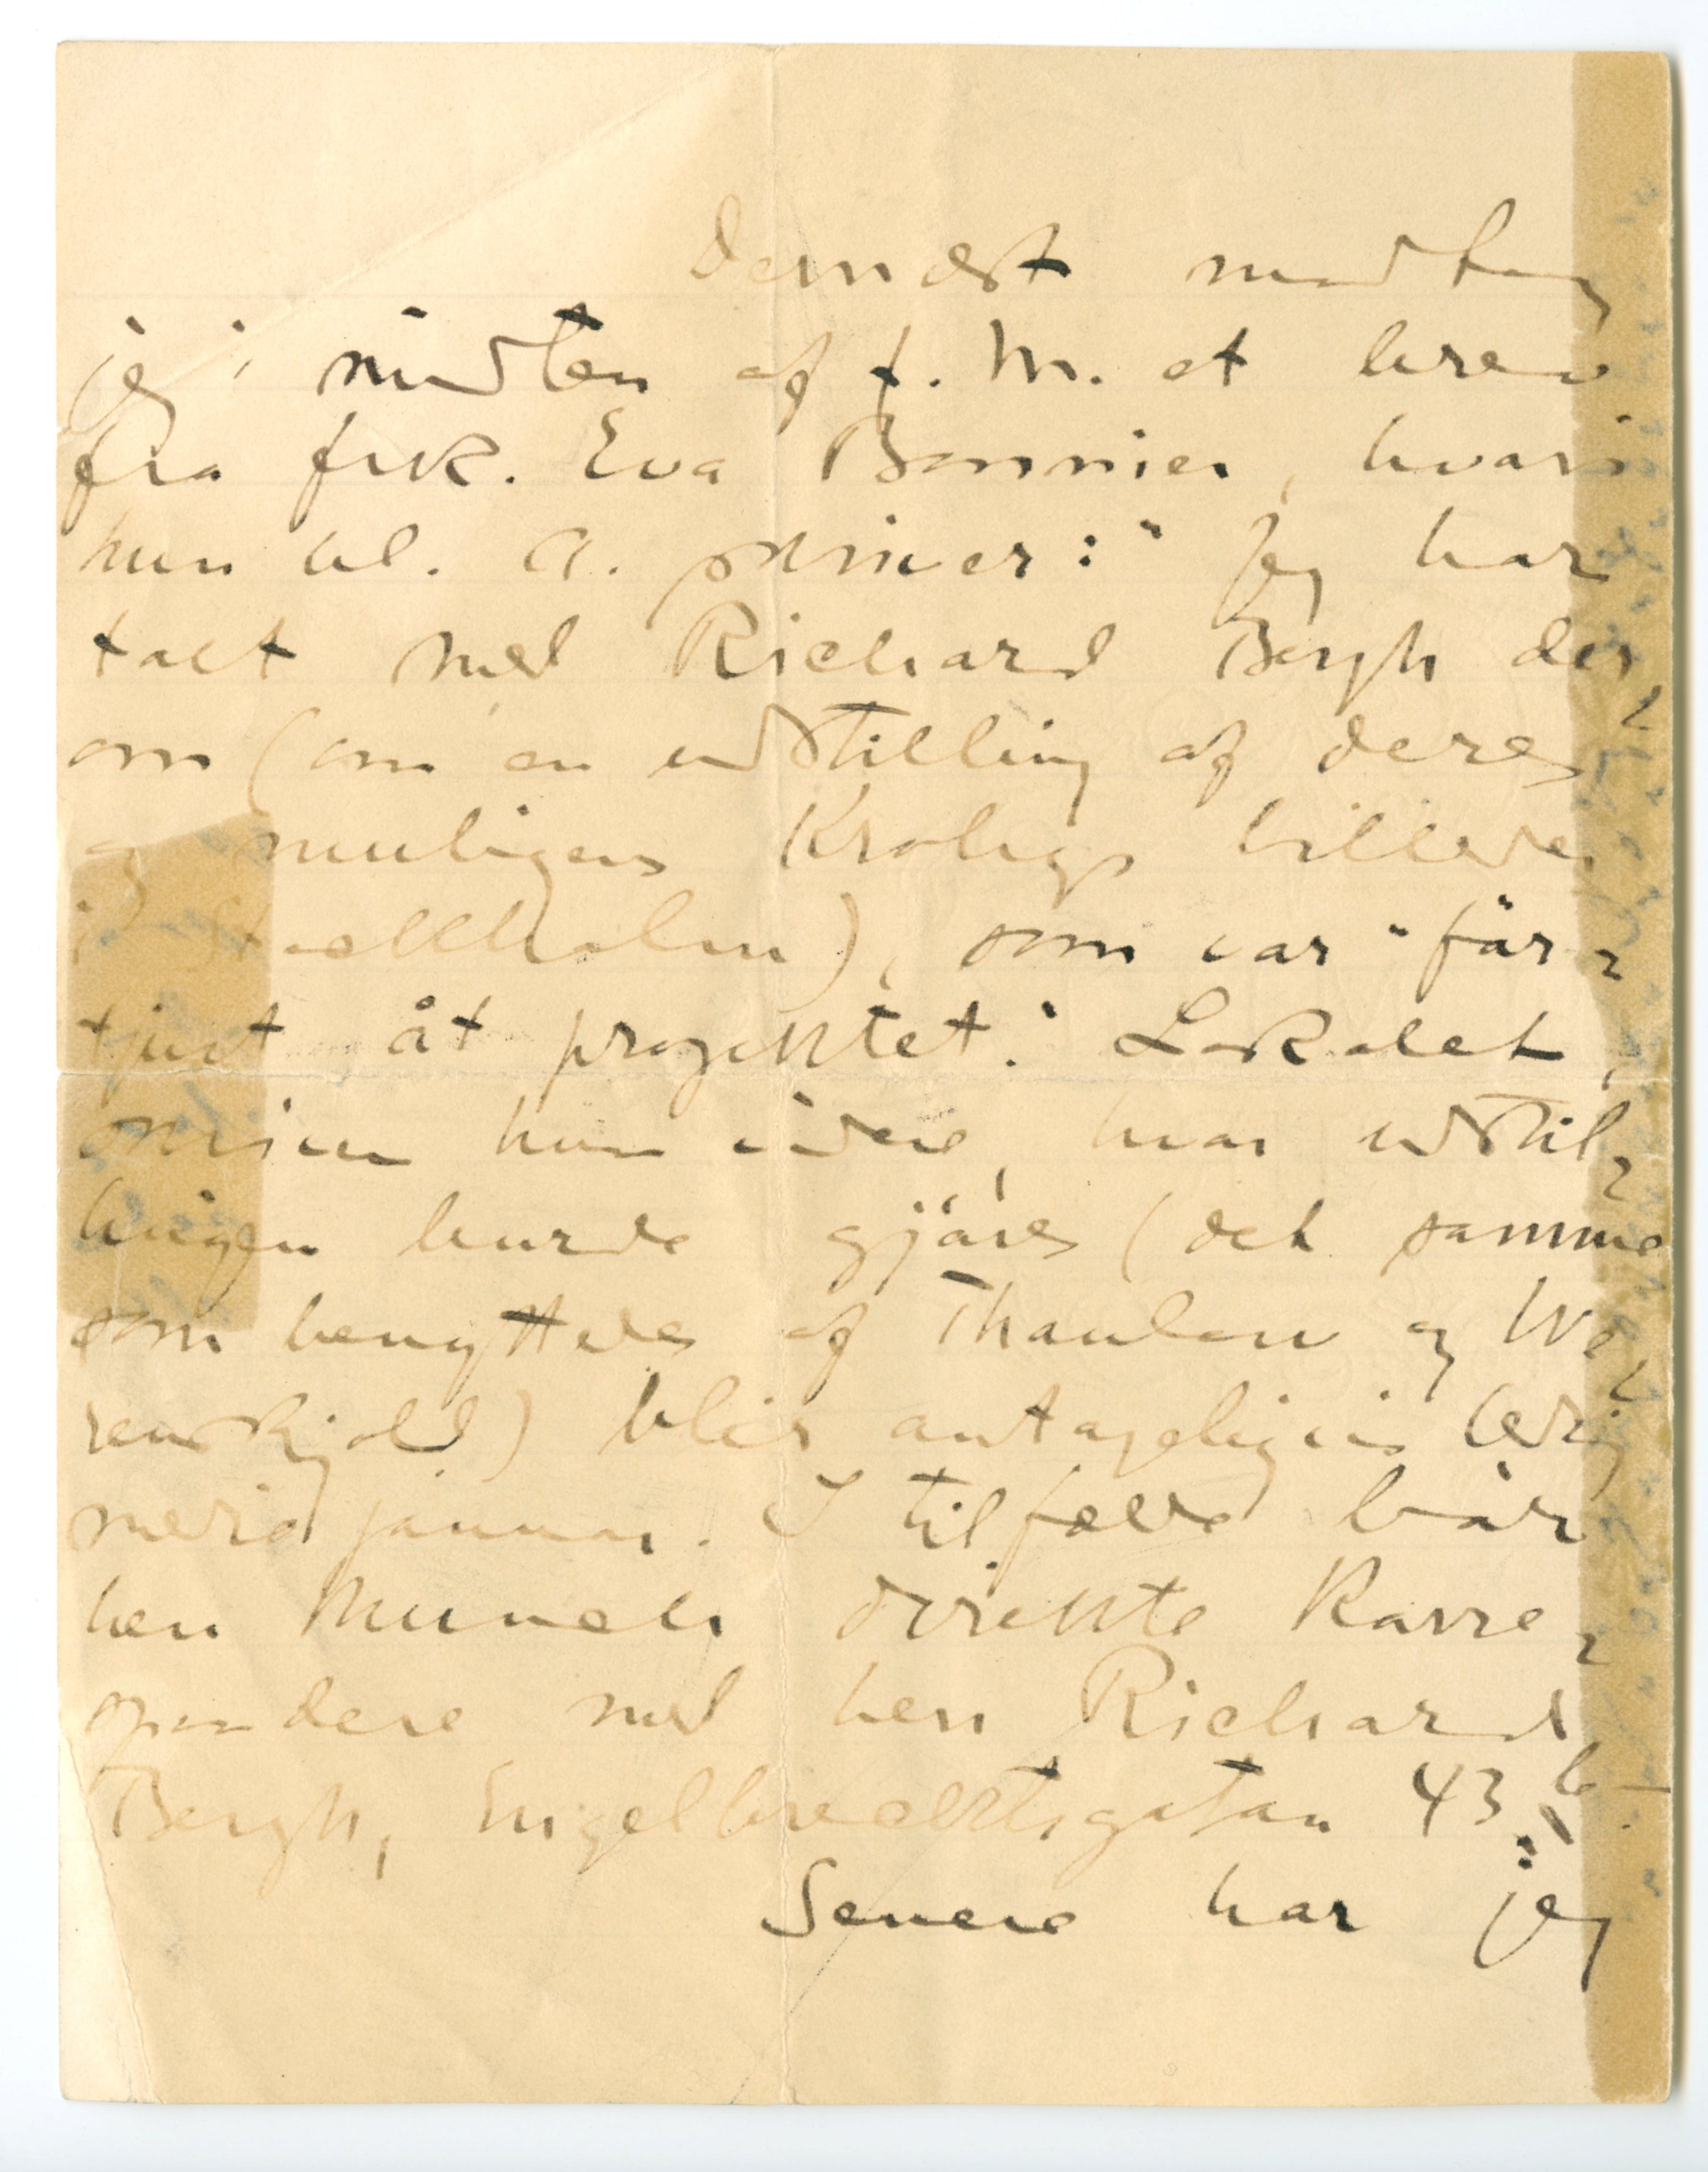 Dernæst modtog
jeg i midten af f. M. et brev
fra frk. Eva Bonnier, hvori
hun bl. a. skriver: "Jeg har
talt med Richard Bergh der-
om (om en udstilling af deres
og muligens Krohgs billeder
i Stockholm), som var "för-
tjust åt projektet." Lokalet,
skriver hun videre, hvor udstil-
lingen burde gjöres (det samme
som benyttedes af Thaulow og We-
renskjold) blir antageligvis ledig
medio januar. I tilfælde bör
herr Munch direkte korre-
spondere med herr Richard
Bergh, Engelbrecktsgatan 43 b
Senere har jeg